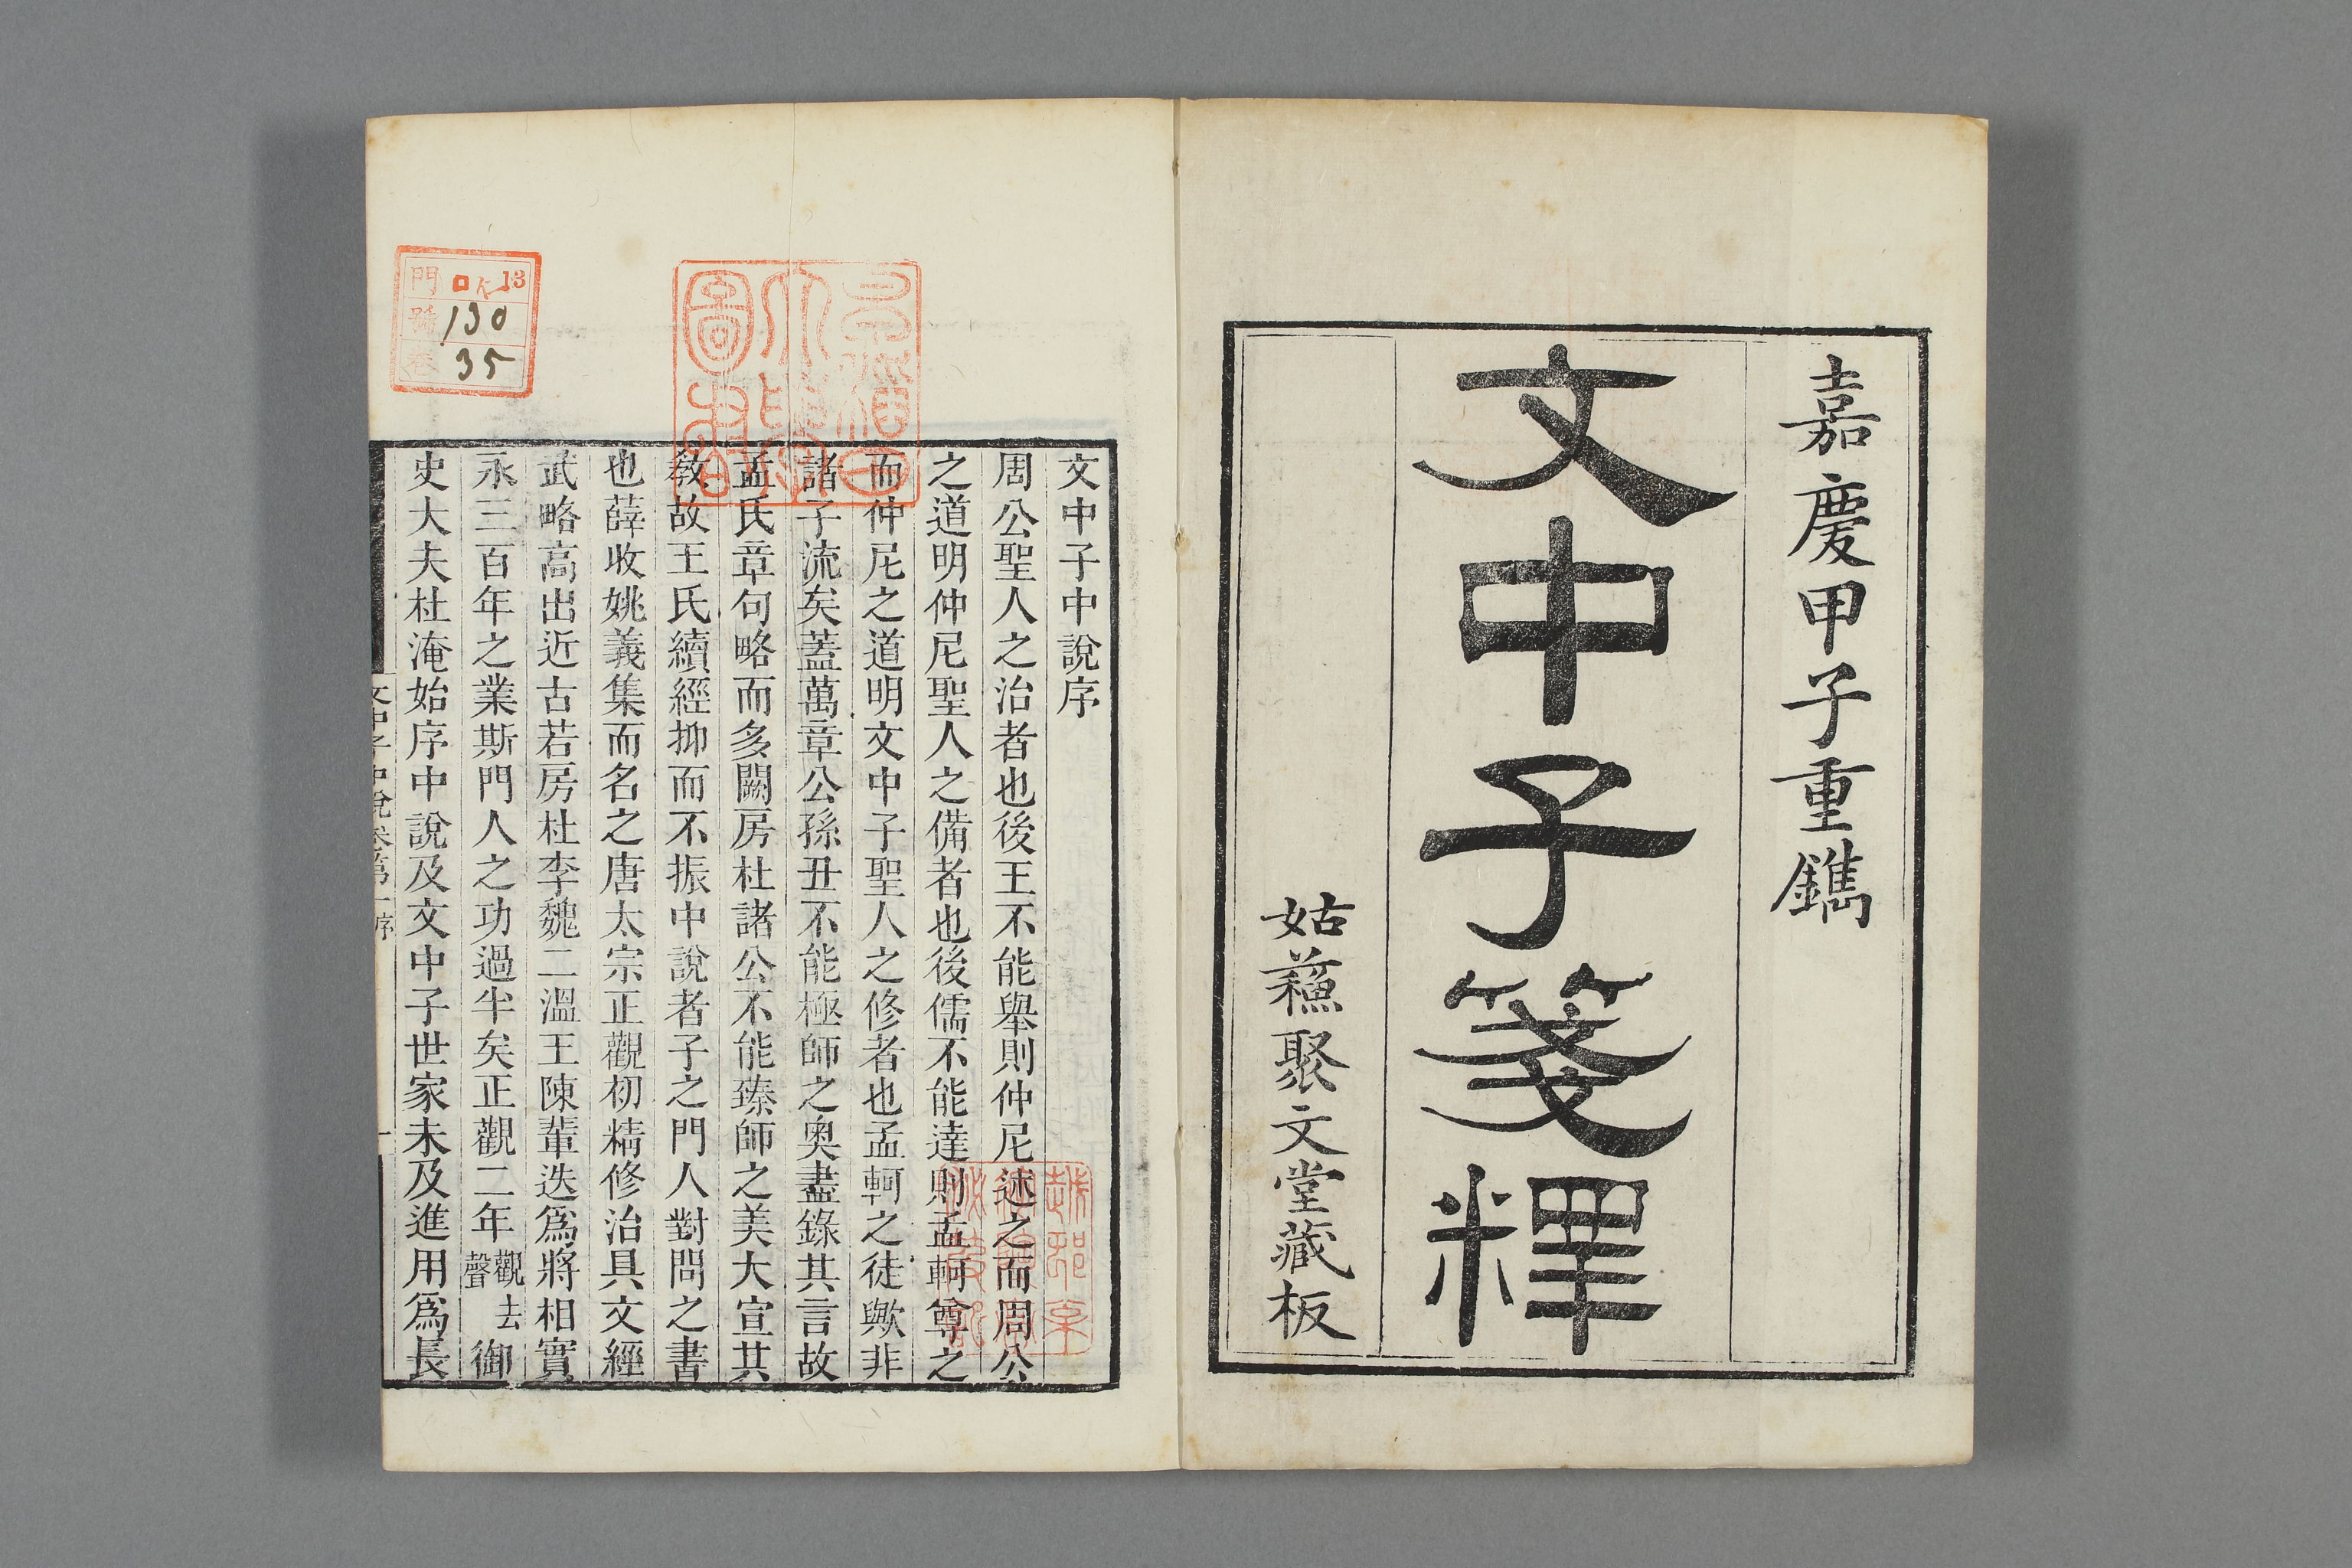 嘉慶甲子重鐫
文中子箋釋
姑蘓聚文堂藏板
文中子中說序
周公聖人之治者也後王不能舉則仲尼述之而周公
之道明仲尼聖人之備者也後儒不能達則孟軻尊之
而仲尼之道明文中子聖人之修者也孟軻之徒歟非
諸子流矣蓋萬章公孫丑不能極師之奧盡錄其言故
孟氏章句略而多闕房杜諸公不能臻師之美大宣其
敎故王氏續經抑而不振中說者子之門人對問之書
也薛收姚義集而名之唐太宗正觀初精修治具文經
武略高出近古若房杜李魏二溫王陳輩迭爲將相實
永三百年之業斯門人之功過半矣正觀二年觀去聲御
史大夫杜淹始序中說及文中子世家未及進用爲長
文中子中說卷第一序
一
早稻田大學圖書
門 ロ 13
號 130
卷 35